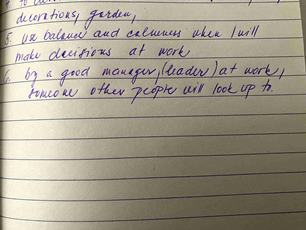 decorations, garden,
5. use balance and calmness when I will
make decisions at work
6. by a good manager, (leader) at work,
someone other people will look up to.